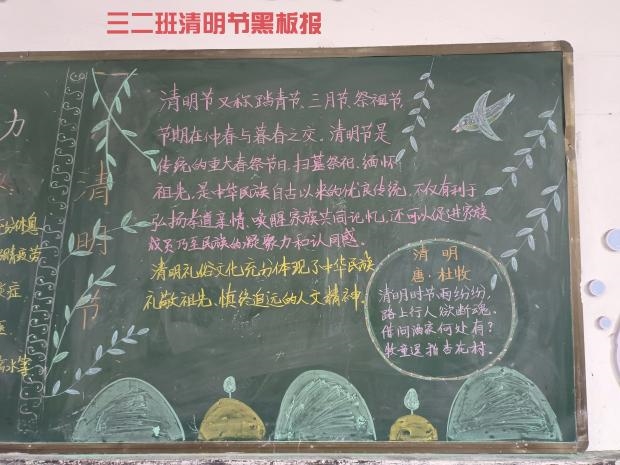 三二班清明节黑板报
力
清明节
清明节又称踏青节、三月节、祭祖节,
节期在仲春与暮春之交。清明节是
传统的重大春祭节日,扫墓祭祀、缅怀
祖先,是中华民族自古以来的优良传统,不仅有利于
弘扬孝道亲情、唤醒家族共同记忆,还可以促进家族
成员乃至民族的凝聚力和认同感。
清明礼俗文化充分体现了中华民族
礼敬祖先、慎终追远的人文精神。
清明
唐·杜牧
清明时节雨纷纷,
路上行人欲断魂。
借问酒家何处有?
牧童遥指杏花村。